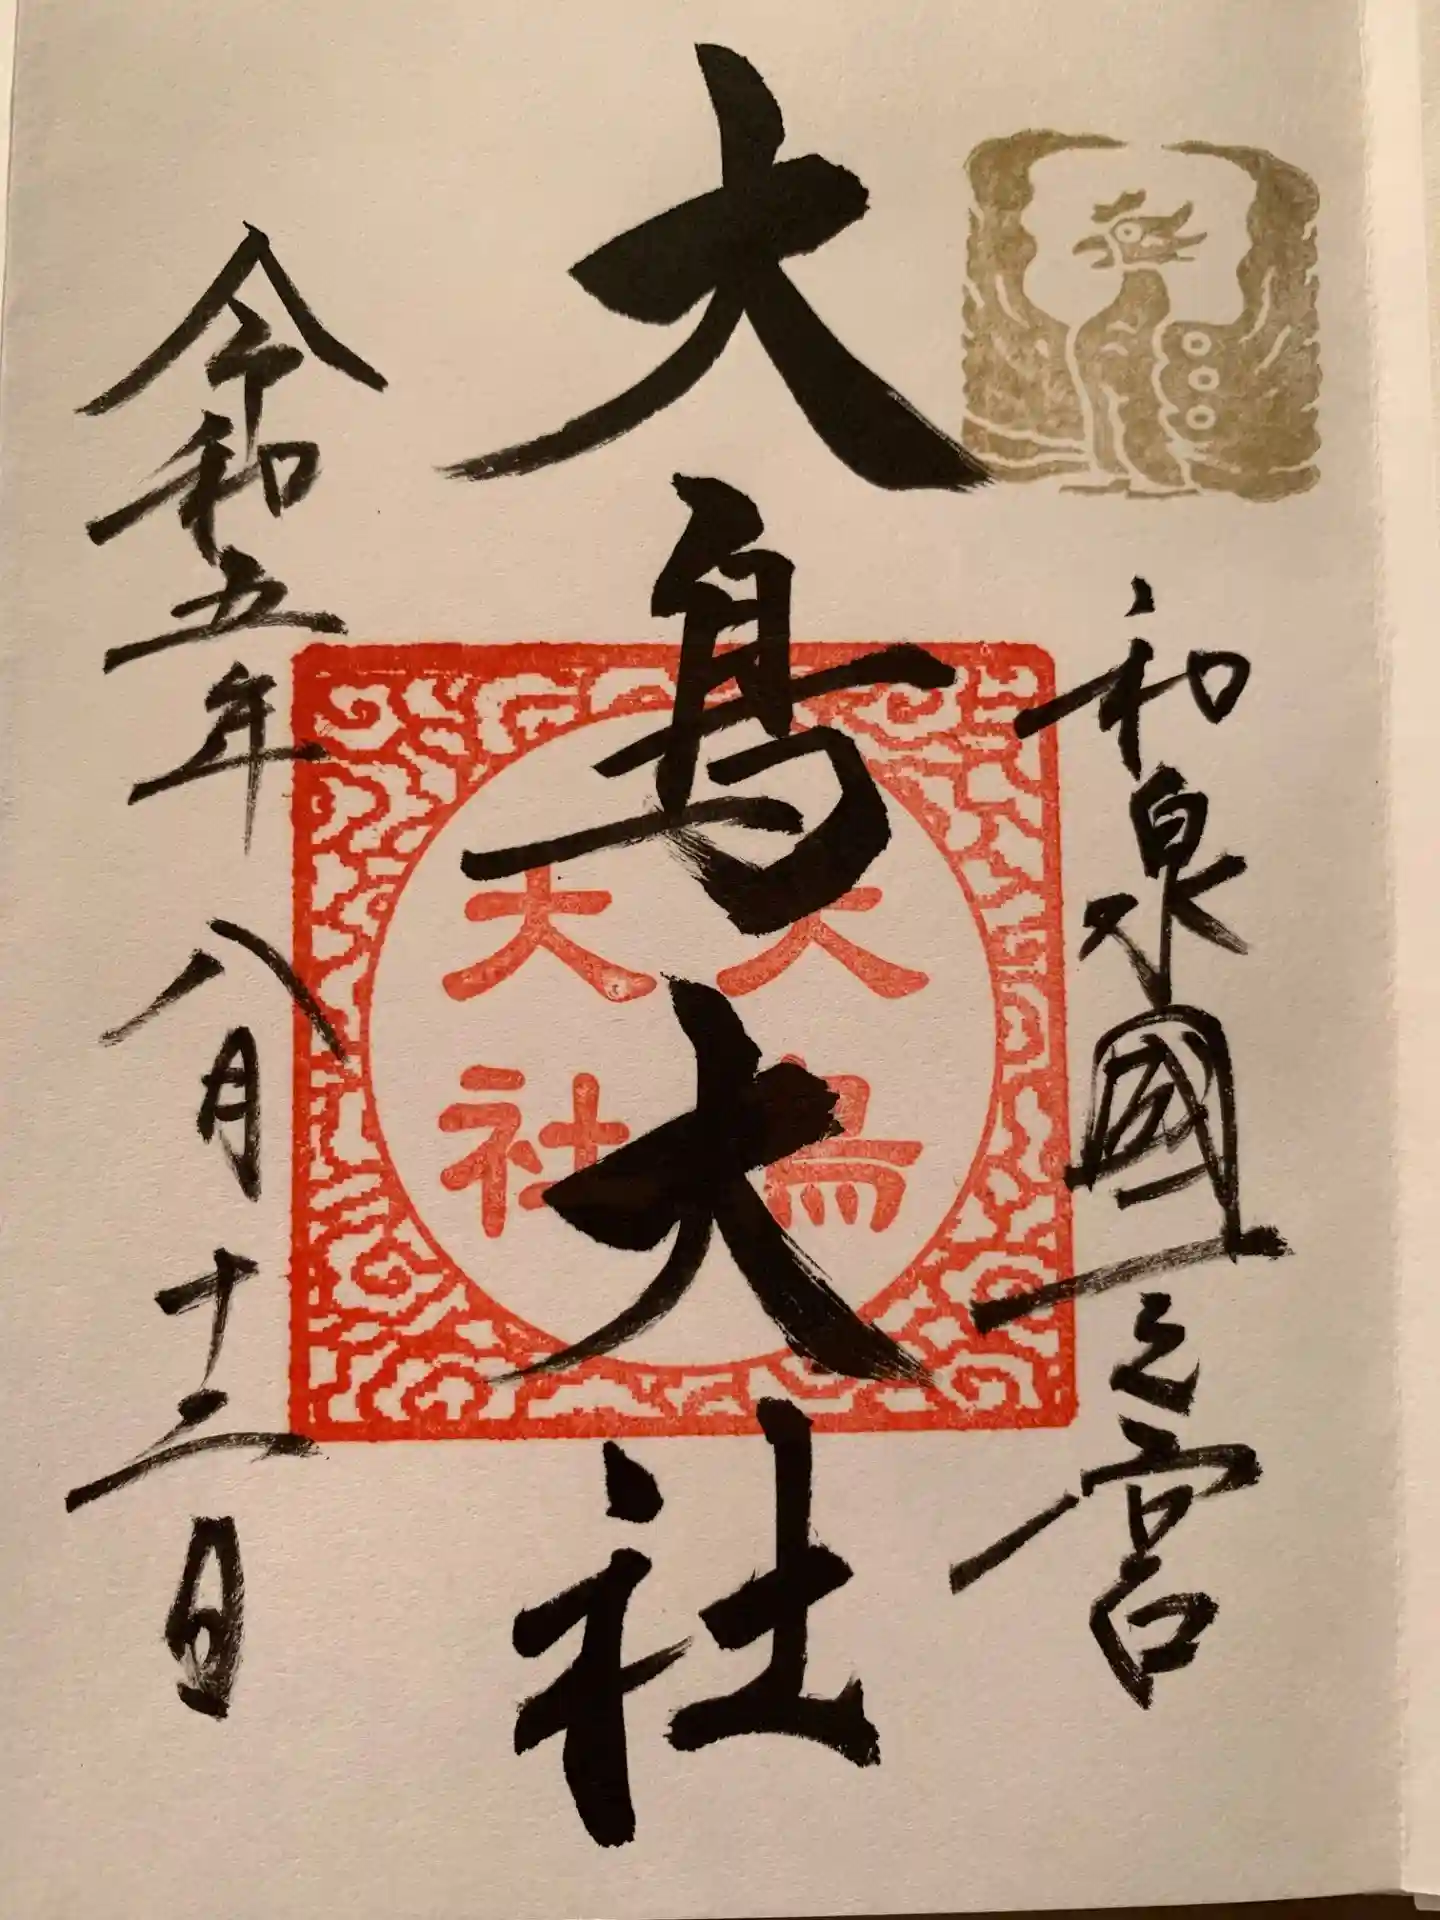 和泉國一之宮
大鳥大社
令和五年八月十三日
大鳥
大社